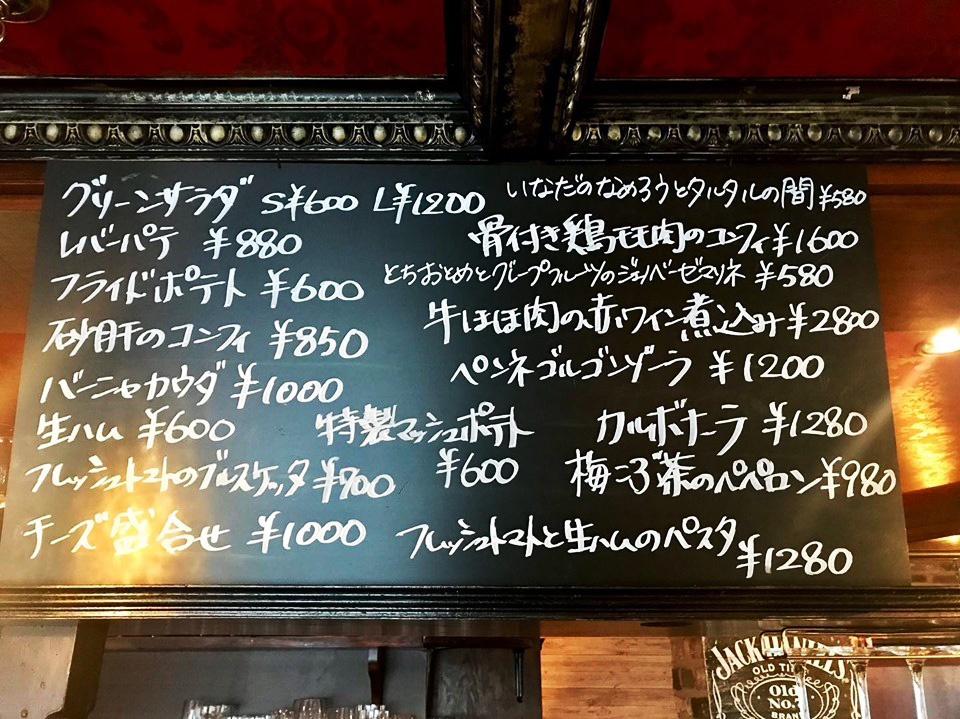 グリーンサラダ S¥600 L¥1200
レバーパテ ¥880
フライドポテト ¥600
砂肝のコンフィ ¥850
バーニャカウダ ¥1000
生ハム ¥600
フレッシュトマトのブルスケッタ ¥700
チーズ盛合せ ¥1000
いなだのなめろうとタルタルの間 ¥580
骨付き鶏モモ肉のコンフィ ¥1600
とちおとめとグレープフルーツのジェノベーゼマリネ ¥580
牛ほほ肉の赤ワイン煮込み ¥2800
ペンネゴルゴンゾーラ ¥1200
特製マッシュポテト
¥600
カルボナーラ ¥1280
梅こぶ茶のペペロン ¥980
フレッシュトマトと生ハムのパスタ
¥1280
JACK DANIEL'S
OLD TI
Old
No.
BRAN